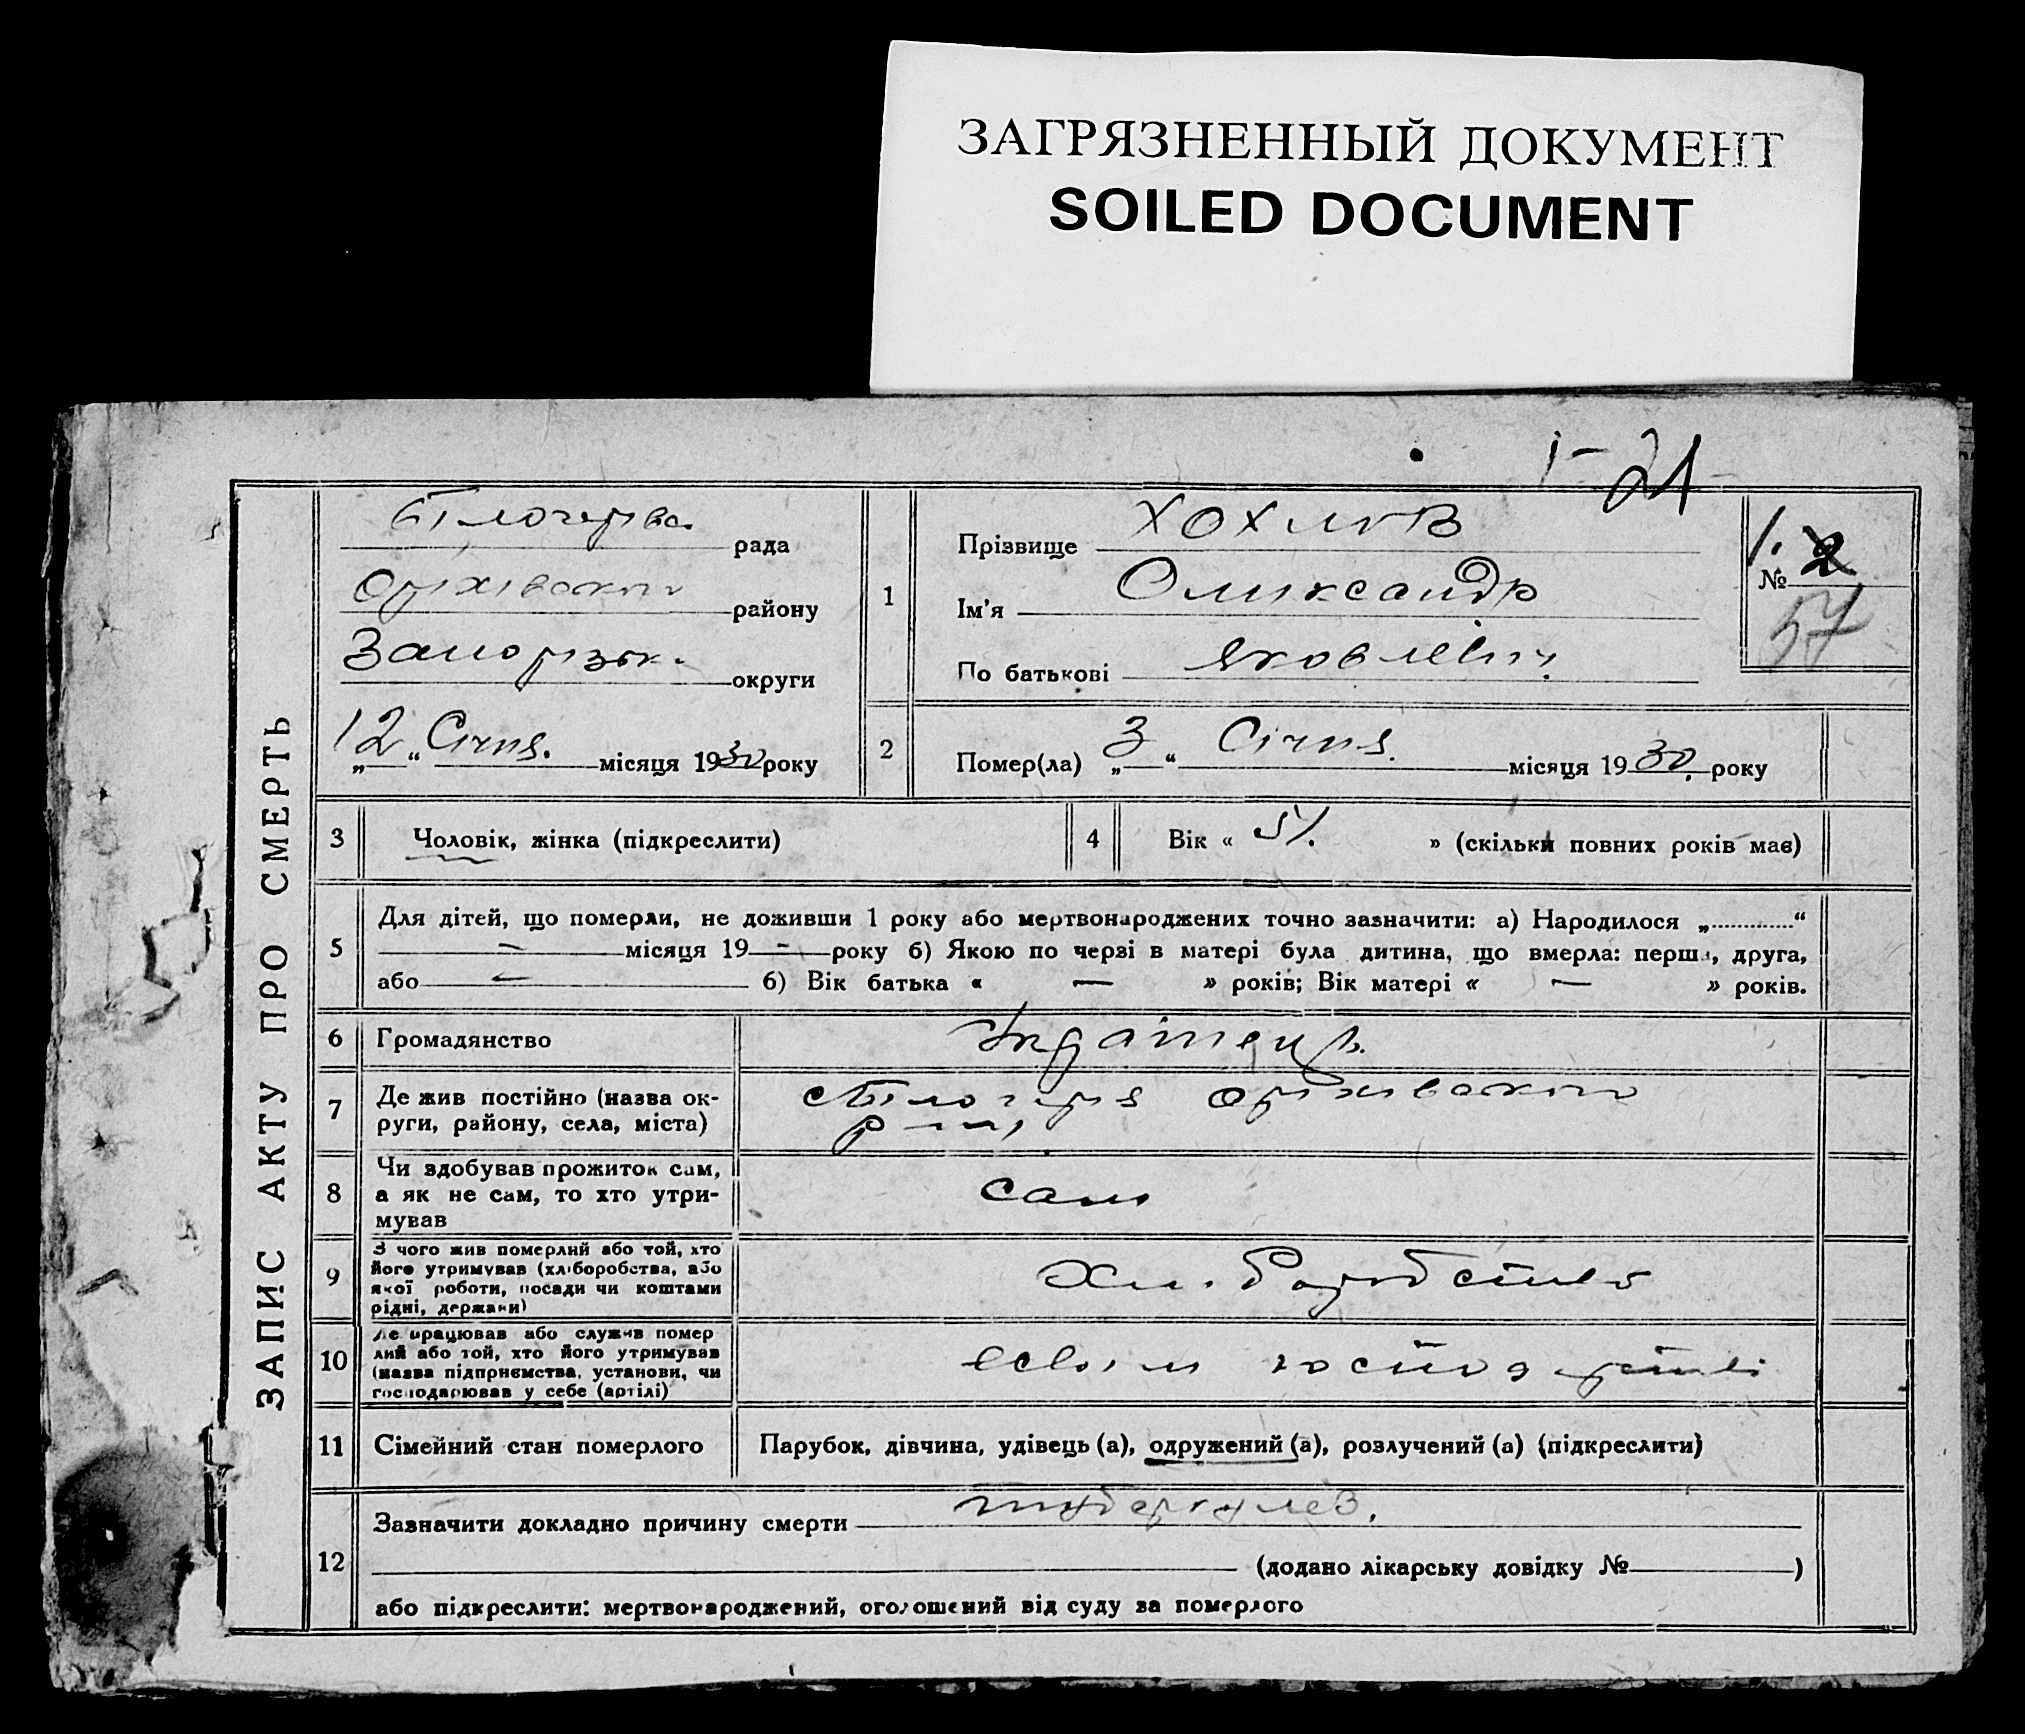 ЗАГРЯЗНЕННЫЙ ДОКУМЕНТ
SOILED DOCUMENT
1-21
ЗАПИС АКТУ ПРО СМЕРТЬ
рада
району
Запорізьк. округи
„12“ Січня. місяця 1930 року
1
Прізвище Хохлов
Ім'я Олександр
По батькові Яковлевіч
1. 2
№
57
2
Помер(ла) „3“ Січня. місяця 1930 року
3
Чоловік, жінка (підкреслити)
4
Вік « 51. » (скільки повних років має)
5
Для дітей, що померли, не доживши 1 року або мертвонароджених точно зазначити: а) Народилося „..............“
— місяця 19 — року б) Якою по черзі в матері була дитина, що вмерла: перша, друга,
або — б) Вік батька « — » років; Вік матері « — » років.
6
Громадянство
7
Де жив постійно (назва ок-
руги, району, села, міста)
8
Чи здобував прожиток сам,
а як не сам, то хто утри-
мував
сам
9
З чого жив померлий або той, хто
його утримував (хліборобства, або
якої роботи, посади чи коштами
рідні, держави)
10
Де працював або служив помер
лий або той, хто його утримував
(назва підприємства, установи, чи
господарював у себе (артілі)
11
Сімейний стан померлого
Парубок, дівчина, удівець (а), одружений (а), розлучений (а) (підкреслити)
12
Зазначити докладно причину смерти туберкулез.
(додано лікарську довідку № )
або підкреслити: мертвонароджений, оголошений від суду за померлого